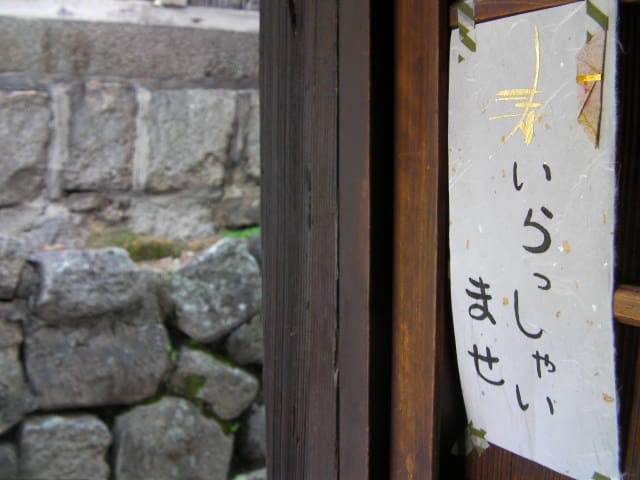 寿
いらっしゃい
ませ